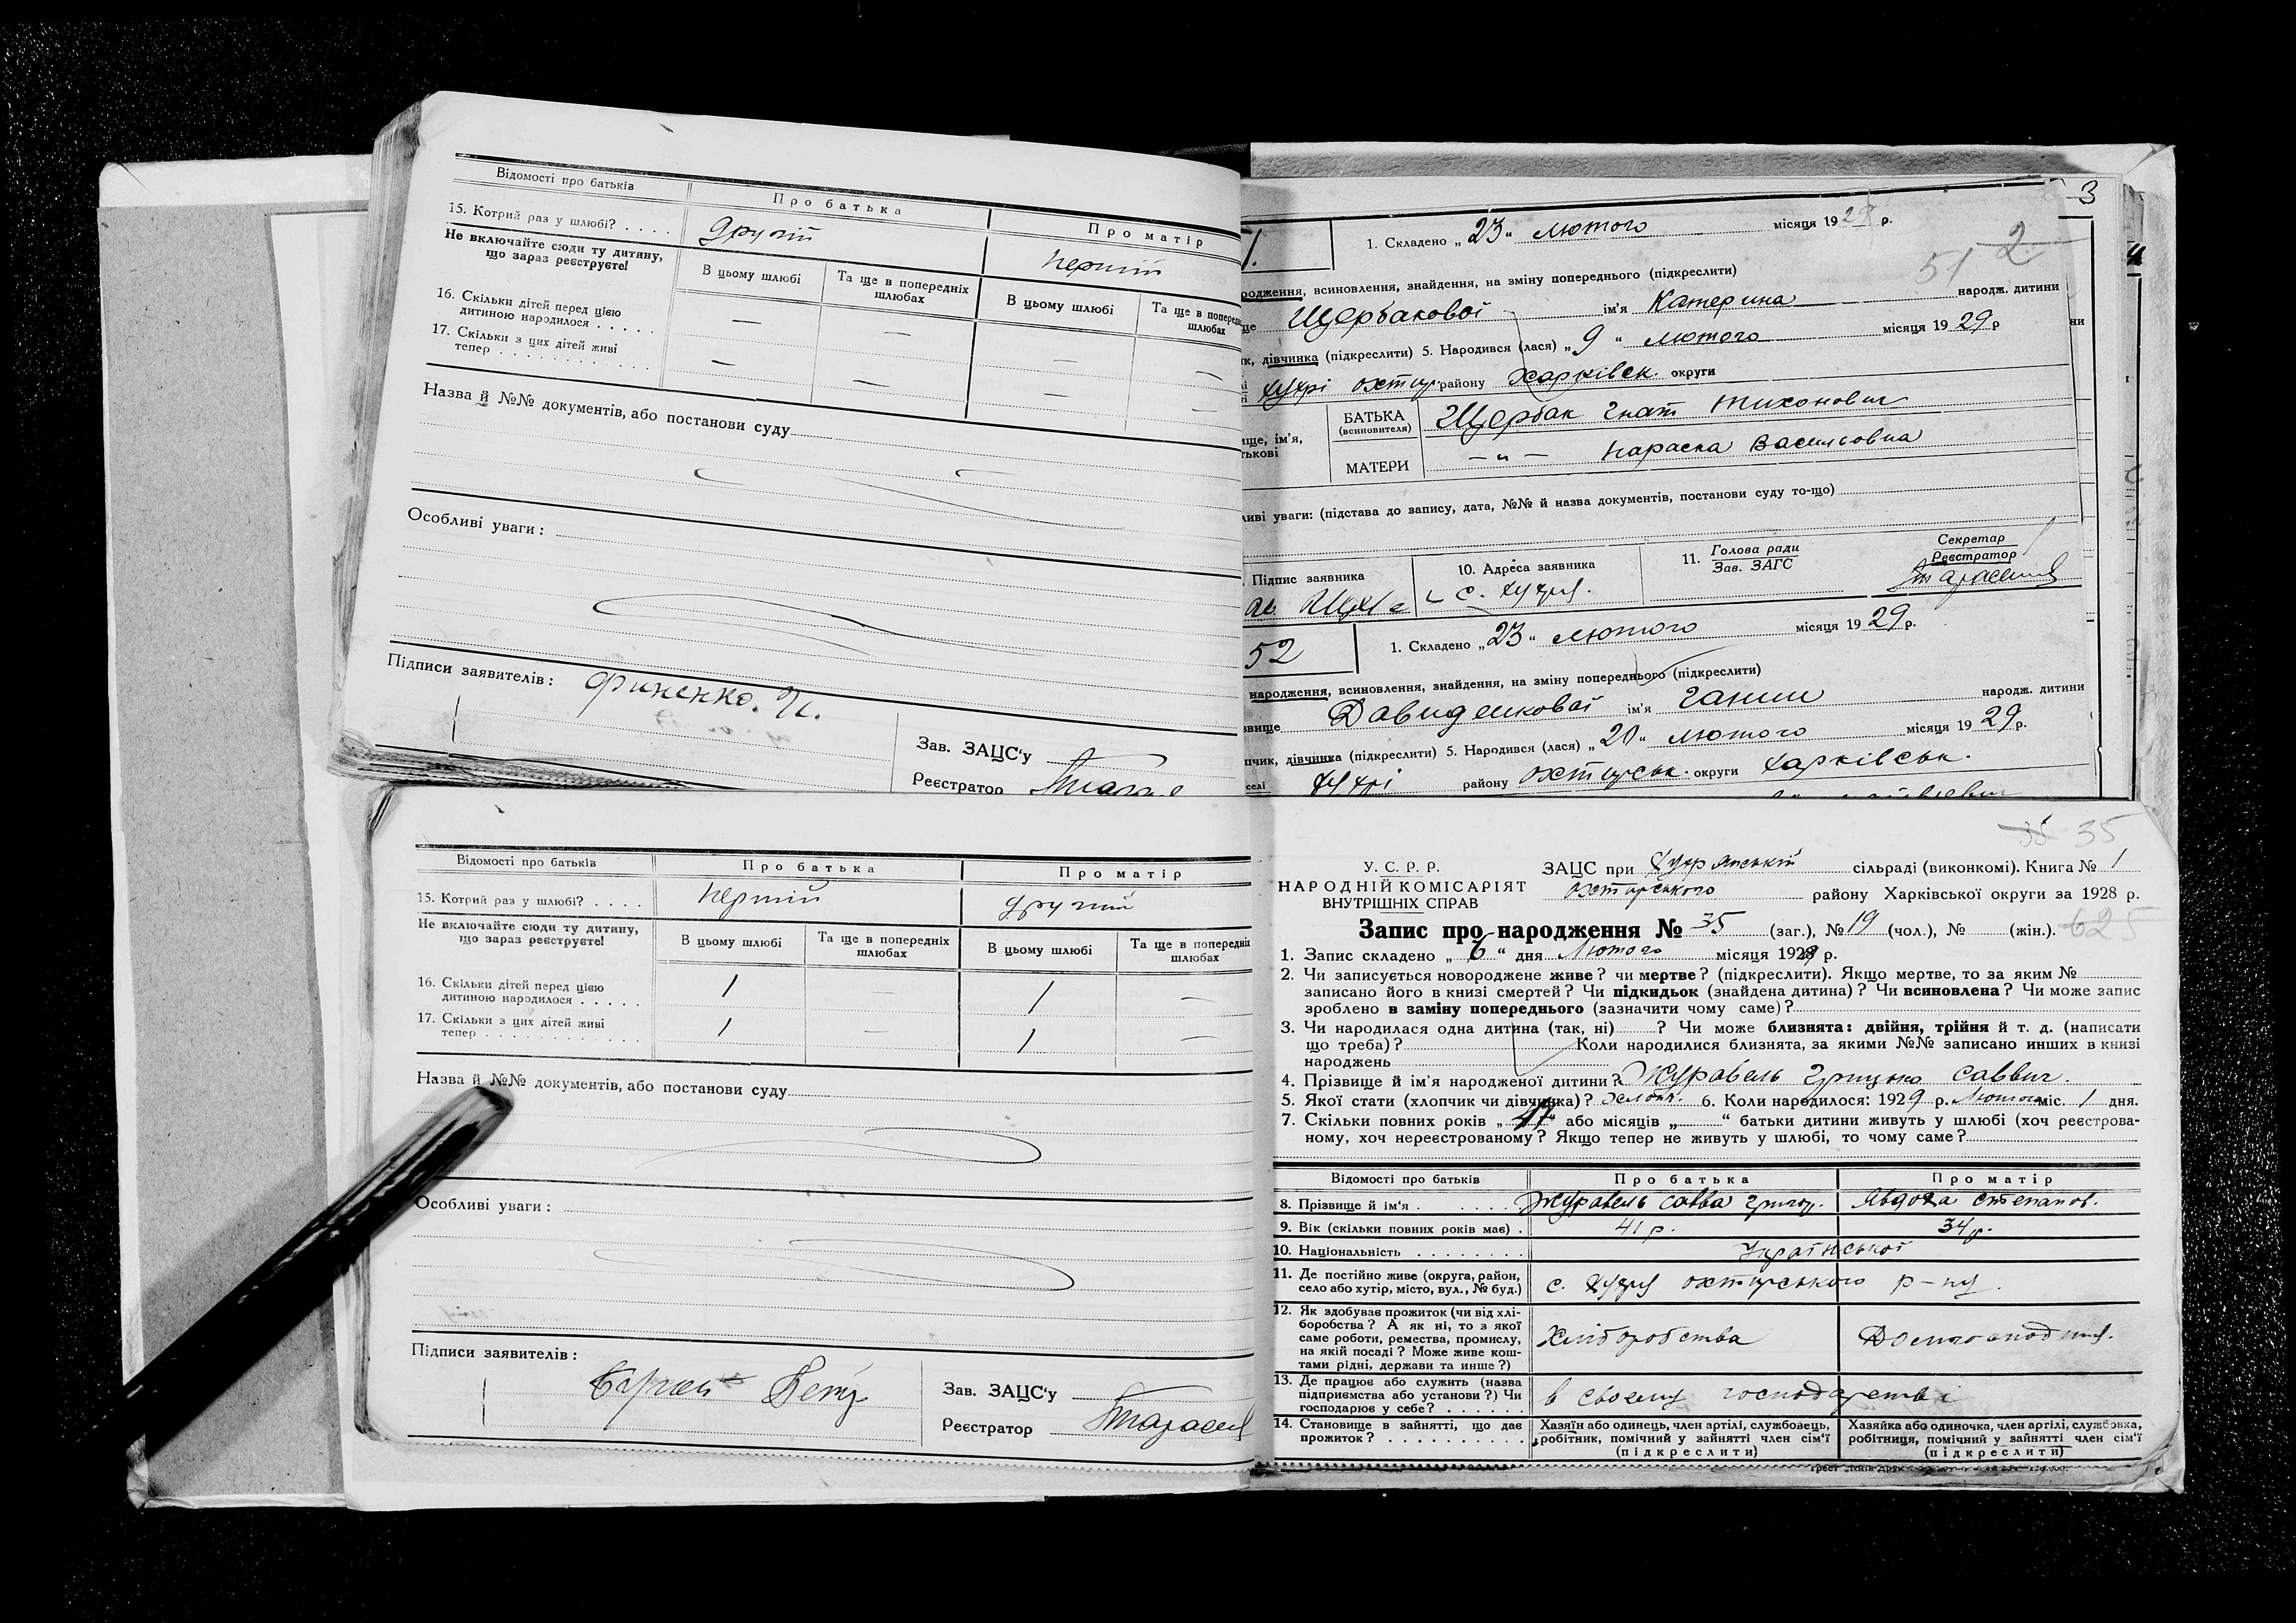 Відомості про батьків
Про батька
Про матір
15. Котрий раз у шлюбі? . . . .
другий
перший
Не включайте сюди ту дитину,
що зараз реєструєте!
В цьому шлюбі
Та ще в попередніх
шлюбах
В цьому шлюбі
Та ще в
шлюбах
16. Скільки дітей перед цією
дитиною народилося . . . . .
— — — —
17. Скільки з цих дітей живі
тепер . . . . . . . . . .
— — — —
Назва й №№ документів, або постанови суду
Особливі уваги:
Підписи заявителів: Финенко. И.
Зав. ЗАЦС'у
Реєстратор
3
1. Складено „23“ лютого місяця 1929 р.
51 2
народження, всиновлення, знайдення, на зміну попереднього (підкреслити)
Щербакової ім'я Катерина народж. дитини
дівчинка (підкреслити) 5. Народився (лася) „9“ лютого місяця 1929 р
хухрі охтир. району Харківськ. округи
ім'я,
БАТЬКА
(всиновителя)
Щербак Гнат Тихонович
МАТЕРИ
—„— Параска Васильовна
уваги: (підстава до запису, дата, №№ й назва документів, постанови суду то-що)
Підпис заявника
10. Адреса заявника
с. хухря.
11. Голова ради
Зав. ЗАГС
Секретар
Реєстратор
52
1. Складено „23“ лютого місяця 1929 р.
народження, всиновлення, знайдення, на зміну попереднього (підкреслити)
Давиденкової ім'я Ганни народж. дитини
дівчинка (підкреслити) 5. Народився (лася) „20“ лютого місяця 1929 р.
селі хухрі району охтирськ. округи харківськ.
Відомості про батьків
Про батька
Про матір
15. Котрий раз у шлюбі? . . . .
перший
другий
Не включайте сюди ту дитину,
що зараз реєструєте!
В цьому шлюбі
Та ще в попередніх
шлюбах
В цьому шлюбі
Та ще в попередніх
шлюбах
16. Скільки дітей перед цією
дитиною народилося . . . . .
1 — 1 —
17. Скільки з цих дітей живі
тепер . . . . . . . . . . . .
1 — 1 —
Назва й №№ документів, або постанови суду
Особливі уваги:
Підписи заявителів:
Зав. ЗАЦС'у
Реєстратор
35 35
У. С. Р. Р.
НАРОДНІЙ КОМІСАРІЯТ
ВНУТРІШНІХ СПРАВ
ЗАЦС при Хухрянській сільраді (виконкомі). Книга № 1
охтирського району Харківської округи за 1928 р.
Запис про народження № 35 (заг.), № 19 (чол.), № (жін.). 625
1. Запис складено „6“ дня Лютого місяця 1929 р.
2. Чи записується новороджене живе? чи мертве? (підкреслити). Якщо мертве, то за яким №
записано його в книзі смертей? Чи підкидьок (знайдена дитина)? Чи всиновлена? Чи може запис
зроблено в заміну попереднього (зазначити чому саме)?
3. Чи народилася одна дитина (так, ні) ? Чи може близнята: двійня, трійня й т. д. (написати
що треба)? Коли народилися близнята, за якими №№ записано инших в книзі
народжень
4. Прізвище й ім'я народженої дитини? Журавель Грицько Саввич.
5. Якої статі (хлопчик чи дівчинка)? Хлопч. 6. Коли народилося: 1929 р. Лютого міс. 1 дня.
7. Скільки повних років „ “ або місяців „ “ батьки дитини живуть у шлюбі (хоч реєстрова-
ному, хоч нереєстрованому? Якщо тепер не живуть у шлюбі, то чому саме?
Відомості про батьків
Про батька
Про матір
8. Прізвище й ім'я . . . . . . . Журавель Савва Григор. Явдоха Степанов.
9. Вік (скільки повних років має) . 41 р. 34 р.
10. Національність . . . . . . . . Української
11. Де постійно живе (округа, район,
село або хутір, місто, вул., № буд.)
с. Хухря охтирського р-ну.
12. Як здобуває прожиток (чи від хлі-
боробства? А як ні, то з якої
саме роботи, ремества, промислу,
на якій посаді? Може живе кош-
тами рідні, держави та инше?)
Хліборобства
13. Де працює або служить (назва
підприємства або установи?) Чи
господарює у себе? . . . . . .
в своему господарстві
14. Становище в зайнятті, що дає
прожиток? . . . . . . . . . . .
Хазяїн або одинець, член артілі, службовець,
робітник, помічний у зайнятті член сім'ї
(підкреслити)
Хазяйка або одиночка, член артілі, службовка,
робітниця, помічний у зайнятті член сім'ї
(підкреслити)